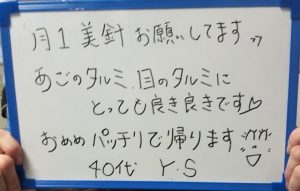 月1美針お願いしてます
あごのタルミ、目のタルミに
とっても良き良きです♡
おめめパッチリで帰ります
40代 Y.S